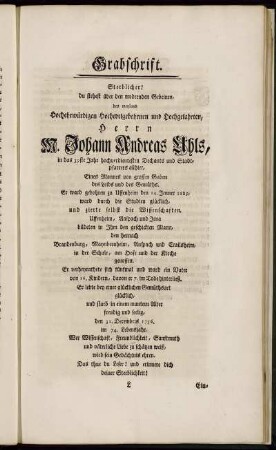 Grabschrift.
Sterblicher!
du stehest über den modernden Gebeinen,
des weyland
Hochehrwürdigen Hochedelgebohrnen und Hochgelahrten,
Herrn
M. Johann Andreas Uhls,
in das 33ste Jahr hochverdientesten Dechants und Stadt-
pfarrers allhier,
Eines Mannes von grossen Gaben
des Leibs und des Gemüths.
Er ward gebohren zu Uffenheim den 14 Jenner
ward durch die Studien glücklich,
und zierte selbst die Wissenschaften.
Uffenheim, Anspach und Jena
bildeten in Ihm den geschickten Mann,
den hernach
Brandenburg, Maynbernheim, Anspach und Crailsheim
in der Schule, am Hofe und der Kirche
genossen.
Er verheyrathete sich und ward ein Vater
von 12. Kindern, davon er 7. im Tode hinterließ.
Er lebte bey einer glücklichen Gemüthsart
glücklich,
und starb in einem muntern Alter
freudig und seelig,
den 31. Decembris 1756.
im 74. Lebensjahr.
Wer Wissenschaft, Freundlichkeit, Sanftmuth
und väterliche Liebe zu schätzen weiß,
wird sein Gedächtniß ehren.
Das thue du Leser! und erinnere dich
deiner Sterblichkeit!
Ein-